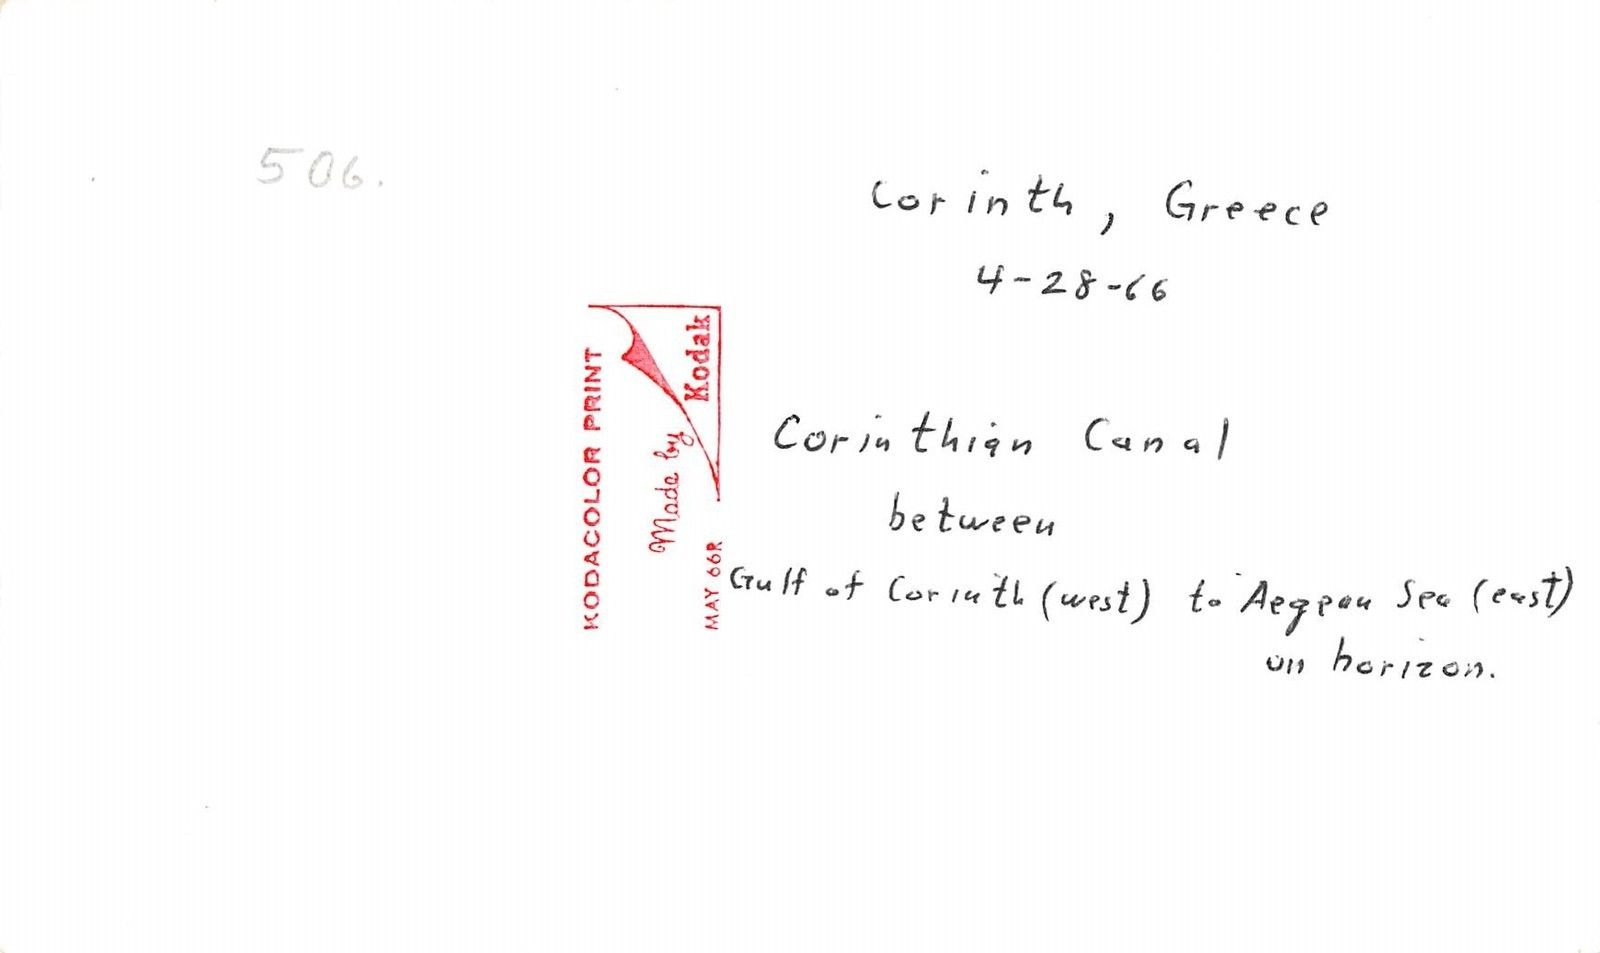 506.
Corinth, Greece
4-28-66
KODACOLOR PRINT
Made by
Kodak
MAY 66R
Corinthian Canal
between
Gulf of Corinth (west) to Aegean Sea (east)
on horizon.